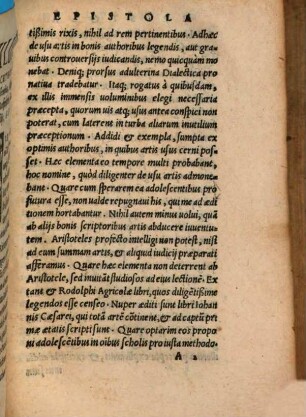 EPISTOLA
tißimis rixis, nihil ad rem pertinentibus · Adhæc
de usu artis in bonis authoribus legendis, aut gra
uibus controuersijs iudicandis, nemo quicquam mo
nebat · Deniq; prorsus adulterina Dialectica pro
natiua tradebatur · Itaq; rogatus à quibusdam,
ex illis immensis voluminibus elegi necessaria
præcepta, quorum uis atq; usus antea conspici non
poterat, cum laterent in turba aliarum inutilium
præceptionum · Addidi & exempla, sumpta ex
optimis authoribus, in quibus artis usus cerni pos
set · Hæc elementa eo tempore multi probabant,
hoc nomine, quòd diligenter de usu artis admone
bant · Quare cum sperarem ea adolescentibus pro
futura esse, non valde repugnaui his, qui me ad ædi
tionem hortabantur. Nihil autem minus uolui, quã
ab alijs bonis scriptoribus artis abducere iuuentu-
tem · Aristoteles profecto intelligi non potest, nisi
ad eum summam artis, & aliquid iudicij præparati
afferamus · Quare hæc elementa non deterrent ab
Aristotele, sed inuitãt studiosos ad eius lectionẽ · Ex
tant & Rodolphi Agricolæ libri, quos diligẽtißime
legendos esse censeo · Nuper æditi sunt libri Iohan
nis Cæsarei, qui totã artẽ cõtinent, & ad captũ pri
mæ ætatis scripti sunt · Quare optarim eos propo
ni adolescẽtibus in oibus scholis pro iusta methodo
A